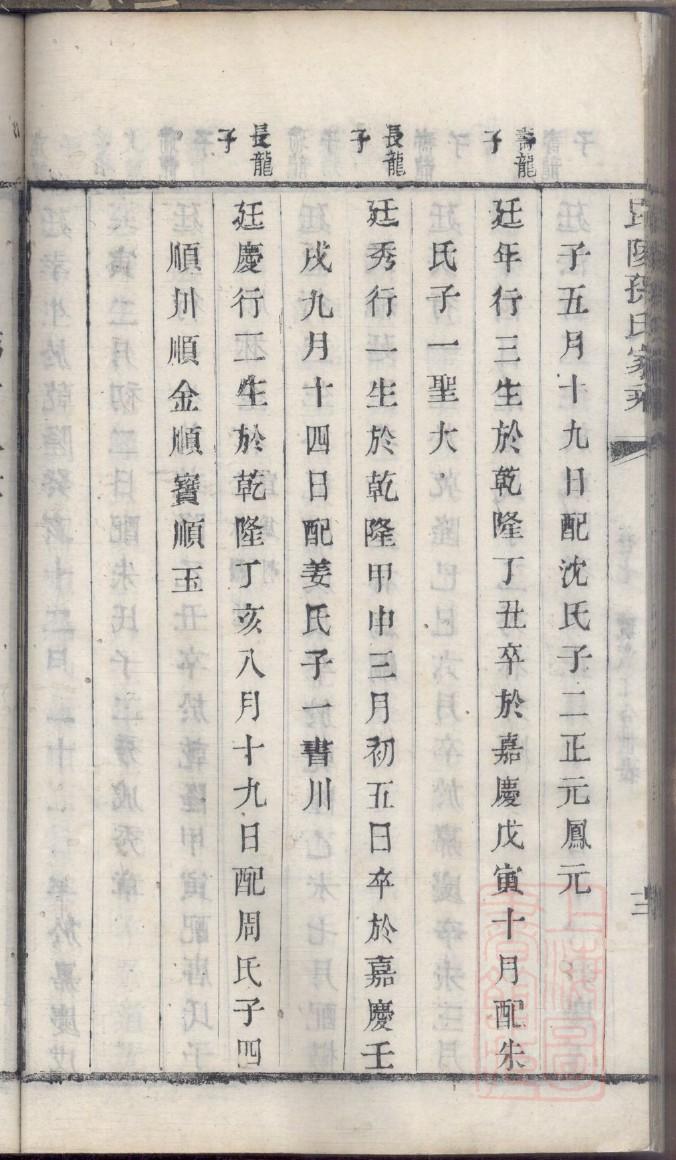 毘陵孫氏家乘
子五月十九日配沈氏子二正元鳳元
壽龍子
廷年行三生於乾隆丁丑卒於嘉慶戊寅十月配朱
氏子一聖大
長龍子
廷秀行一生於乾隆甲申三月初五日卒於嘉慶壬
戌九月十四日配姜氏子一書川
長龍子
廷慶行二生於乾隆丁亥八月十九日配周氏子四
順川順金順寶順玉